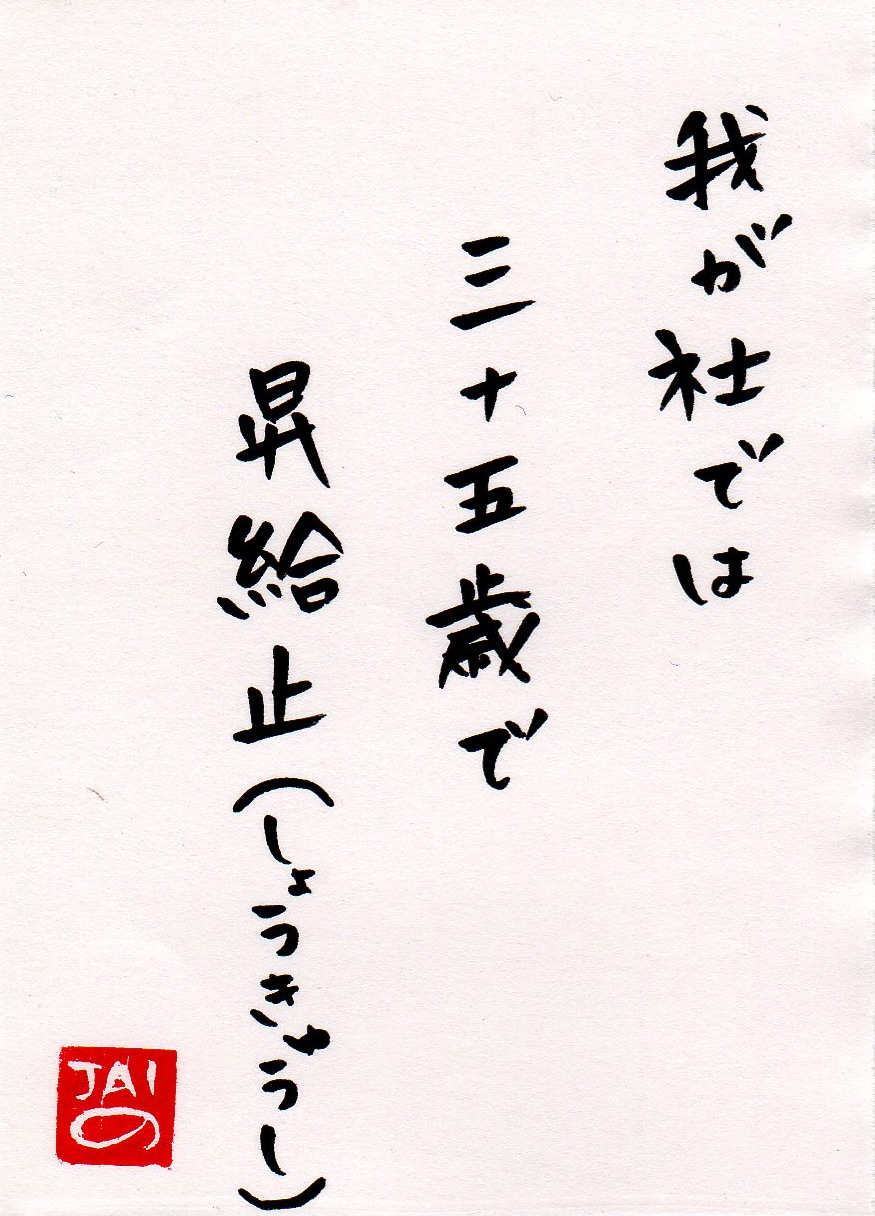 我が社では
三十五歳で
昇給止(しょうきゅうし)
JAI
の